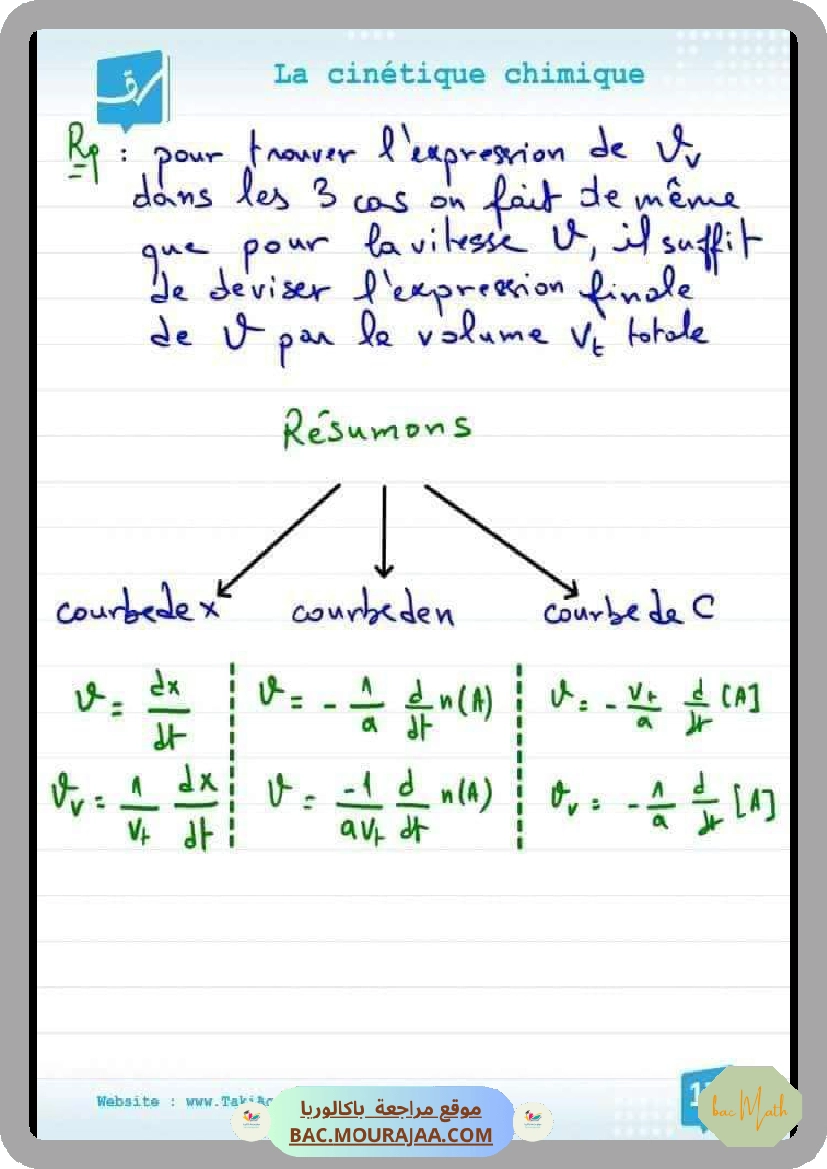 La cinétique chimique
Rq : pour trouver l'expression de v_v
dans les 3 cas on fait de même
que pour la vitesse v, il suffit
de deviser l'expression finale
de v par le volume V_t totale
Résumons
courbe de x
v = dx/dt
v_v = 1/V_t dx/dt
courbe de n
v = - 1/a d/dt n(A)
v = -1/aV_t d/dt n(A)
courbe de C
v = - V_t/a d/dt [A]
v_v = - 1/a d/dt [A]
Website : www.Taki
موقع مراجعة باكالوريا
BAC.MOURAJAA.COM
bac Math